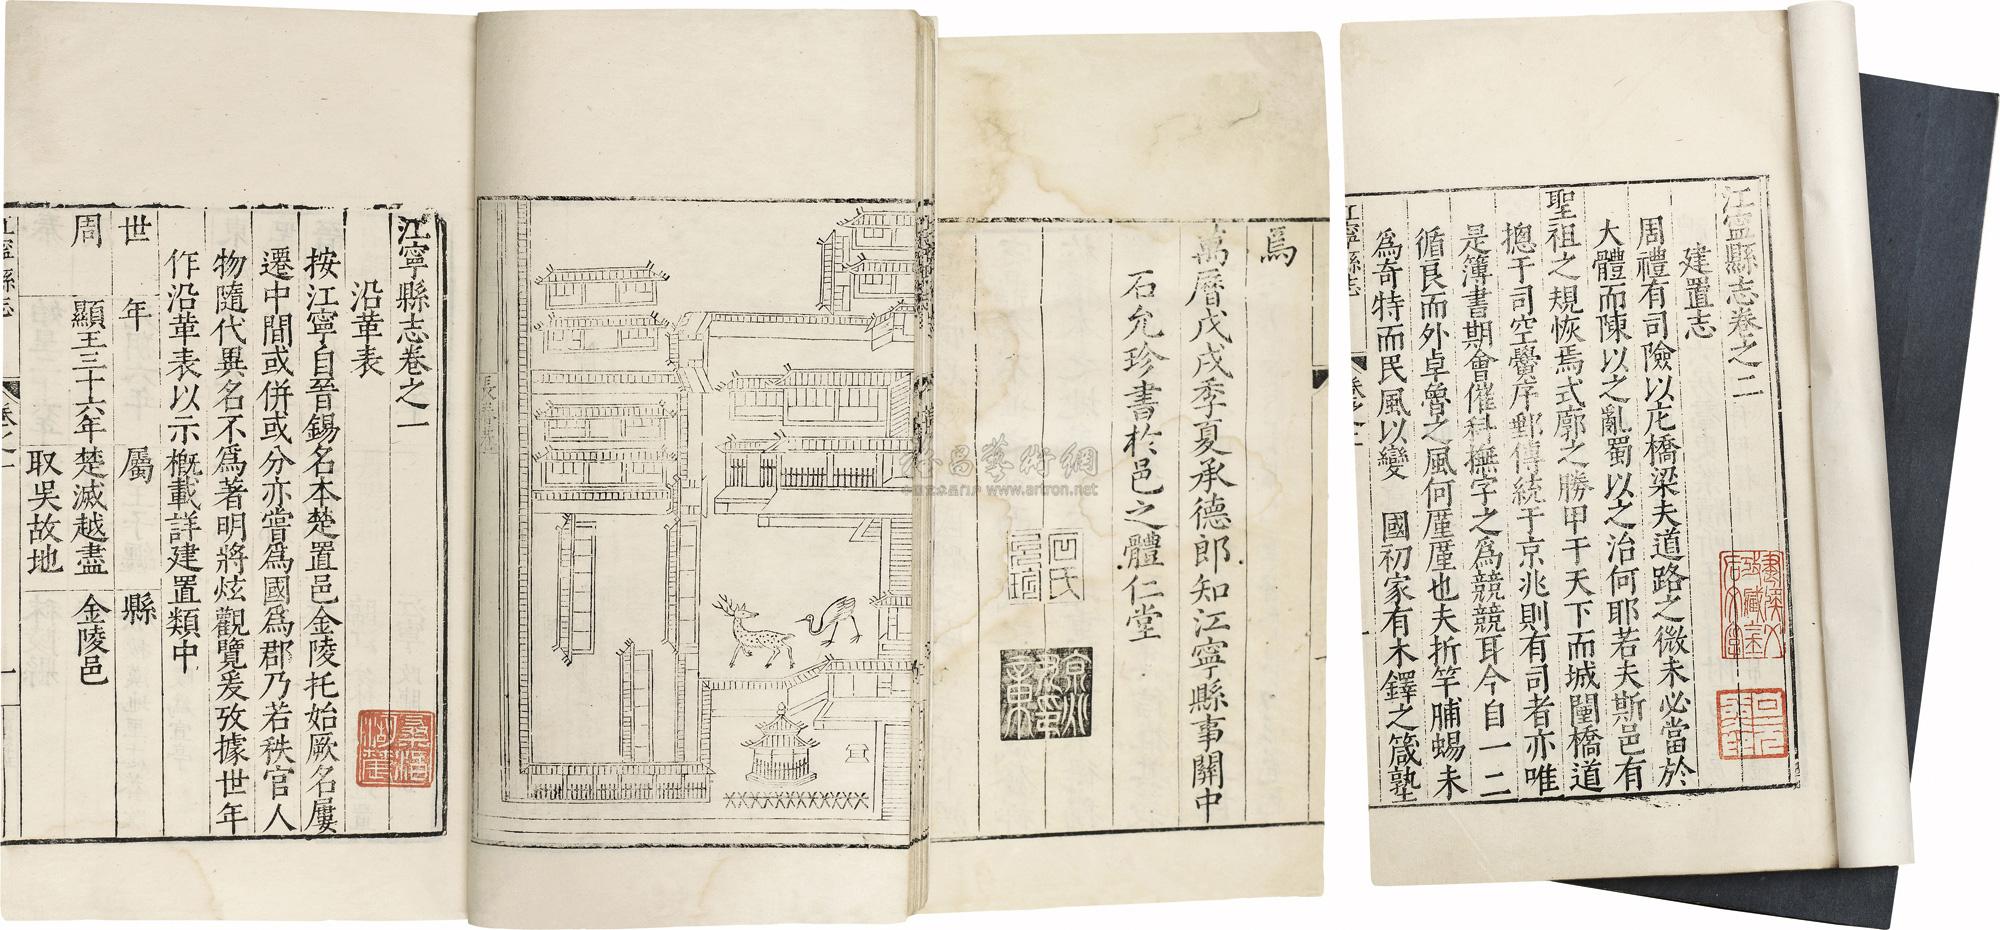 江寧縣志卷之二
建置志
周禮有司險以庀橋梁夫道路之微未必當於
大體而陳以之亂蜀以之治何耶若夫斯邑有
聖祖之規恢焉式廓之勝甲于天下而城闉橋道
摠于司空黌序郵傳統于京兆則有司者亦唯
是簿書期會催科撫字之為競競耳今自一二
循良而外卓魯之風何厪厪也夫折竿脯蜴未
為奇特而民風以變 國初家有木鐸之箴塾
江寧縣志
卷之二
為
萬曆戊戌季夏承德郎知江寧縣事關中
石允珍書於邑之體仁堂
石氏
江寧縣志卷之一
沿革表
按江寧自晉錫名本楚置邑金陵托始厥名屢
遷中間或併或分亦嘗為國為郡乃若秩官人
物隨代異名不為著明將炫觀覽爰攷據世年
作沿革表以示槪載詳建置類中
世 年 屬 縣
周 顯王三十六年楚滅越盡 金陵邑
取吳故地
江寧縣志
卷之一
一
www.artron.net